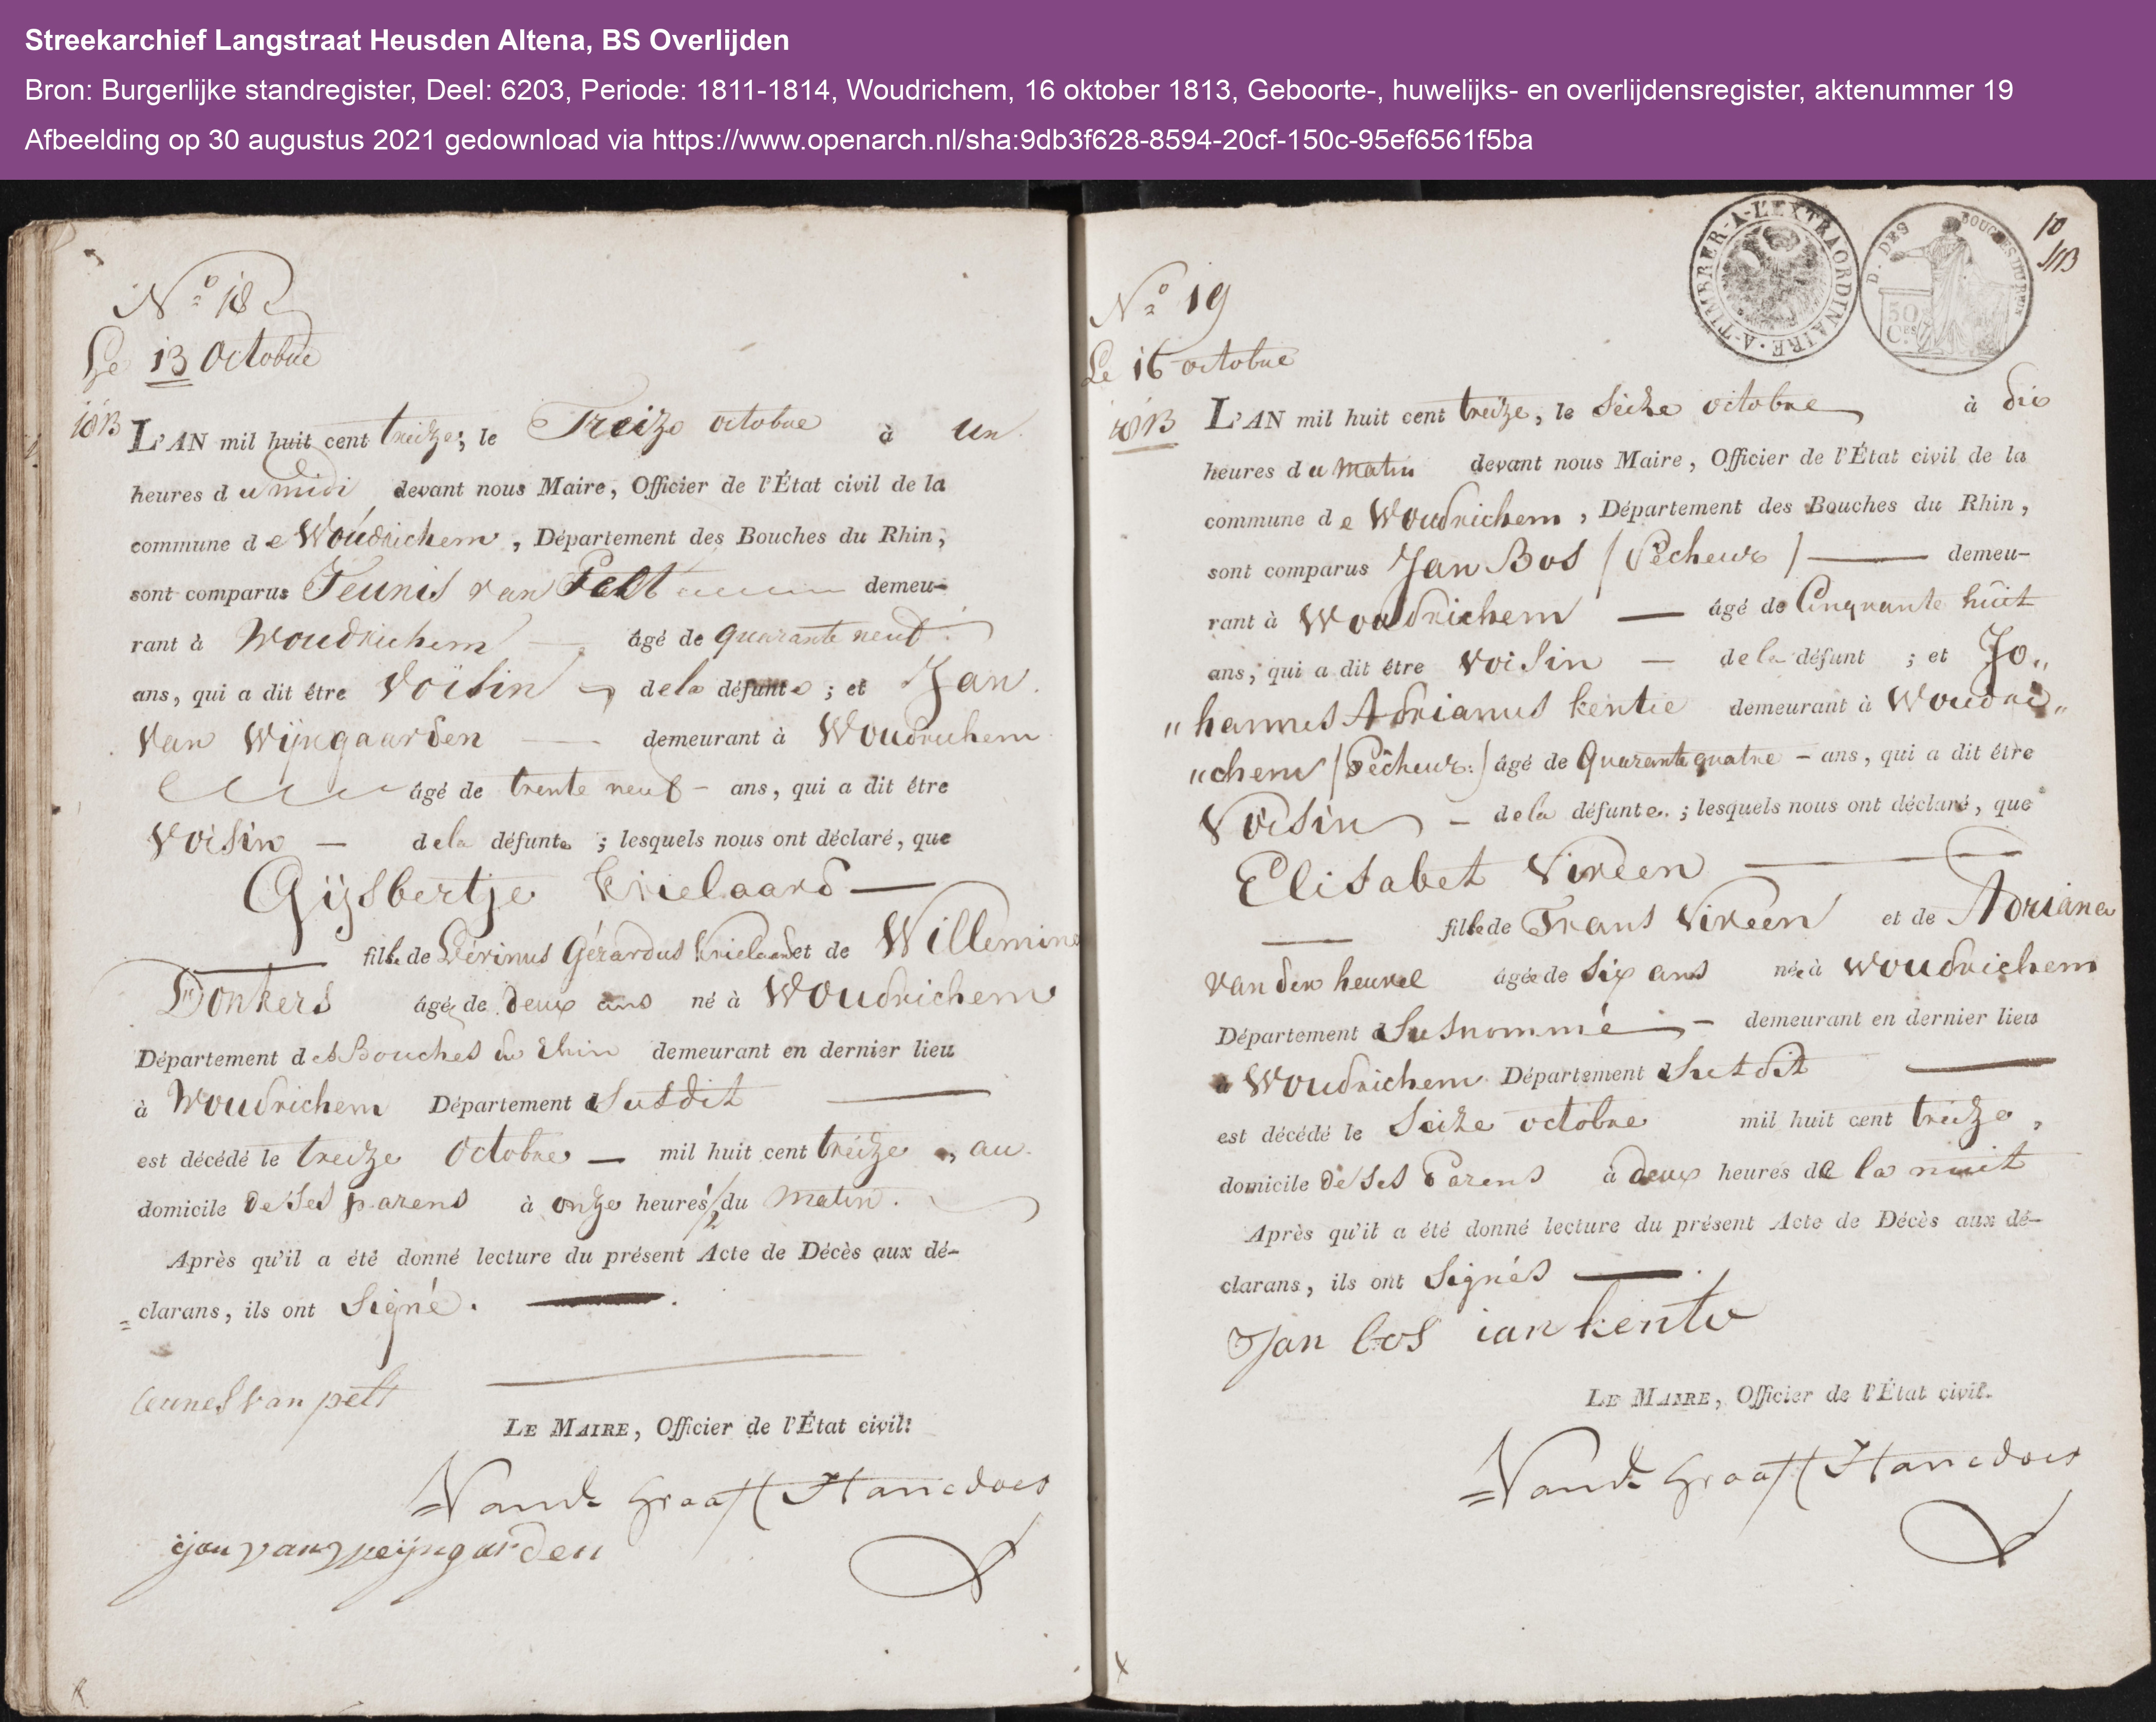 Streekarchief Langstraat Heusden Altena, BS Overlijden
Bron: Burgerlijke standregister, Deel: 6203, Periode: 1811-1814, Woudrichem, 16 oktober 1813, Geboorte-, huwelijks- en overlijdensregister, aktenummer 19
Afbeelding op 30 augustus 2021 gedownload via https://www.openarch.nl/sha:9db3f628-8594-20cf-150c-95ef6561f5ba
No 18
Le 13 Octobre
L'AN mil huit cent treize; le Treize octobre à un
heures du midi devant nous Maire, Officier de l'État civil de la
commune de Woudrichem, Département des Bouches du Rhin,
sont comparus Teunis van Pelt demeu-
rant à Woudrichem — âgé de quarante neuf
ans, qui a dit être Voisin dela défunte; et Jan
Van Wijngaarden — demeurant à Woudrichem
âgé de trente neuf – ans, qui a dit être
Voisin — dela défunte; lesquels nous ont déclaré, que
Gijsbertje Krielaard —
fille de Sérinus Gérardus Krielaard et de Willemina
Donkers âgée de deux ans né à Woudrichem
Département des Bouches du Rhin demeurant en dernier lieu
à Woudrichem Département Susdit —
est décédé le treize Octobre — mil huit cent treize, au
domicile de ses parens à onze heures 1/2 du matin.
Après qu'il a été donné lecture du présent Acte de Décès aux dé-
clarans, ils ont Signé.
teunes van pelt
LE MAIRE, Officier de l'État civil:
Vand Graaff Hanedoes
jan van weijngarden
A-TIMBRER-A-L'EXTRAORDINAIRE
D. DES BOUCHES DU RHIN
50 CES
10
No 19
Le 16 octobre
L'AN mil huit cent treize, le Seize octobre à dix
heures du Matin devant nous Maire, Officier de l'État civil de la
commune de Woudrichem, Département des Bouches du Rhin,
sont comparus Jan Bos / Pêcheur / — demeu-
rant à Woudrichem — âgé de Cinquante huit
ans, qui a dit être Voisin — dela défunt; et Jo„
„hannes Adrianus kentie demeurant à Woudri„
„chem / Pêcheur: / âgé de Quarante quatre – ans, qui a dit être
Voisin – dela défunte.; lesquels nous ont déclaré, que
Elisabet Vireen —
— fille de Frans Vireen et de Adriana
van den heuvel âgée de Six ans née à Woudrichem
Département Susnommé — demeurant en dernier lieu
à Woudrichem Département Susdit —
est décédé le Seize octobre mil huit cent treize,
domicile de Ses Parens à deux heures de la nuit
Après qu'il a été donné lecture du présent Acte de Décès aux dé-
clarans, ils ont Signés —.
Jan bos ian kentie
LE MAIRE, Officier de l'État civil.
Vand Graaff Hanedoes